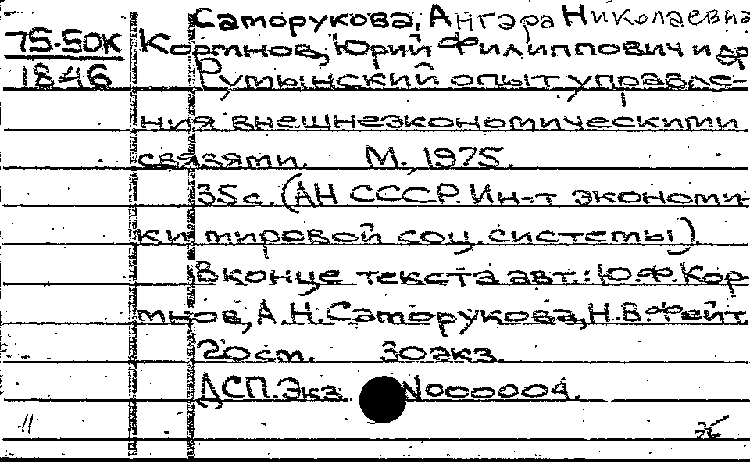 Саморукова, Ангара Николаевна
75-50К Кормнов, Юрий Филиппович и др
1846 Румынский опыт управле-
ния внешнеэкономическими
связями. М., 1975.
35 с. (АН СССР. Ин-т экономи-
ки мировой соц. системы)
В конце текста авт.: Ю.Ф. Кор-
мнов, А.Н. Саморукова, Н.В. Фейт.
20 cm. 30 экз.
ДСП. Экз. N000004.